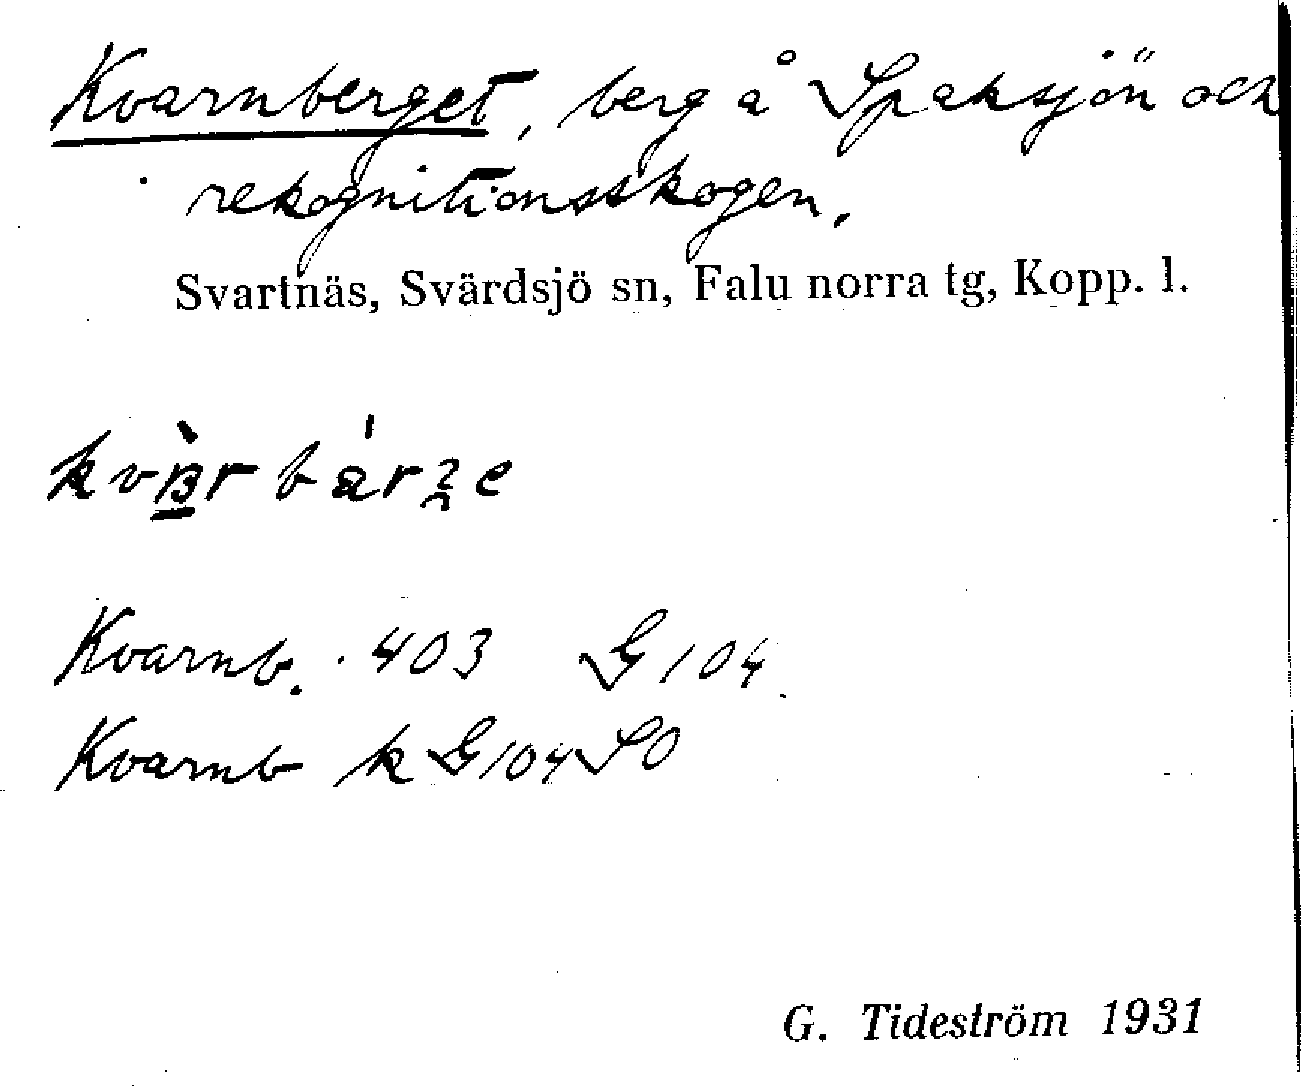 Kvarnberget, berg å Spaksjön och
rekognitionsskogen.
Svartnäs, Svärdsjö sn, Falu norra tg, Kopp. l.
Kvarnb. 403 G 104
Kvarnb k G 104 SO
G. Tideström 1931